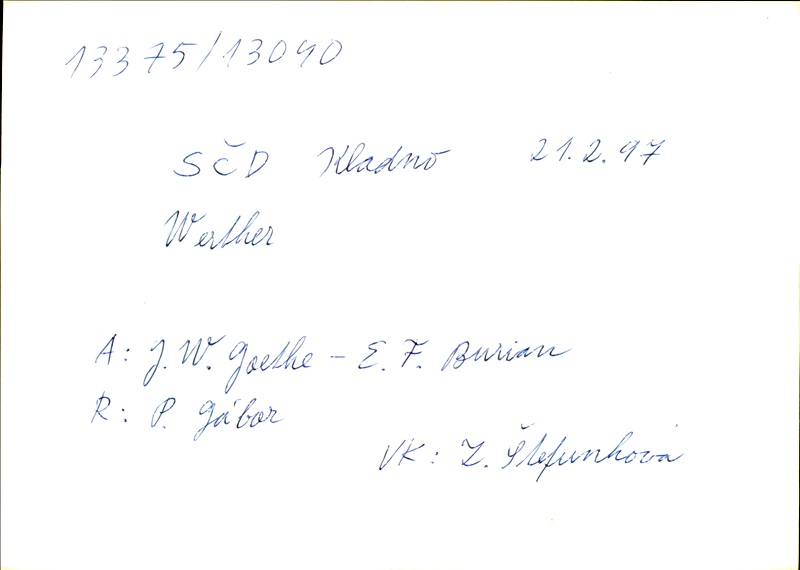 13375/13040
SČD Kladno 21.2.97
Werther
A: J. W. Goethe - E. F. Burian
R: P. Gábor
VK: Z. Štefunková